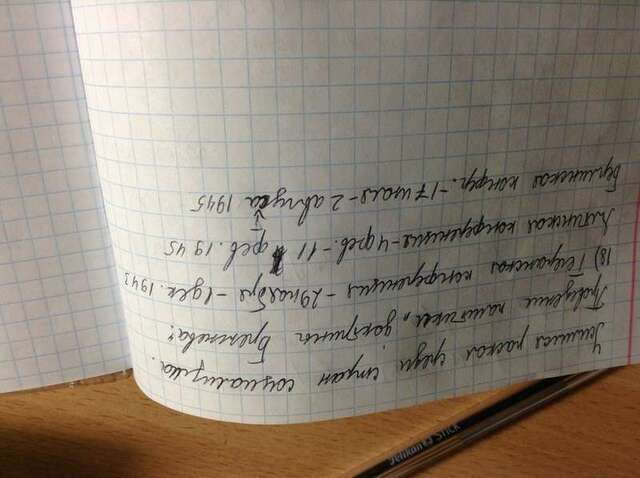 Усилился раскол среди стран социализма.
Проведение политики „доктрины Брежнева".
18) Тегеранская конференция - 29 ноября - 1 дек. 1943
Ялтинская конференция - 4 фев. - 11 фев. 1945
Берлинская конфер. - 17 июля - 2 августа 1945
STICK